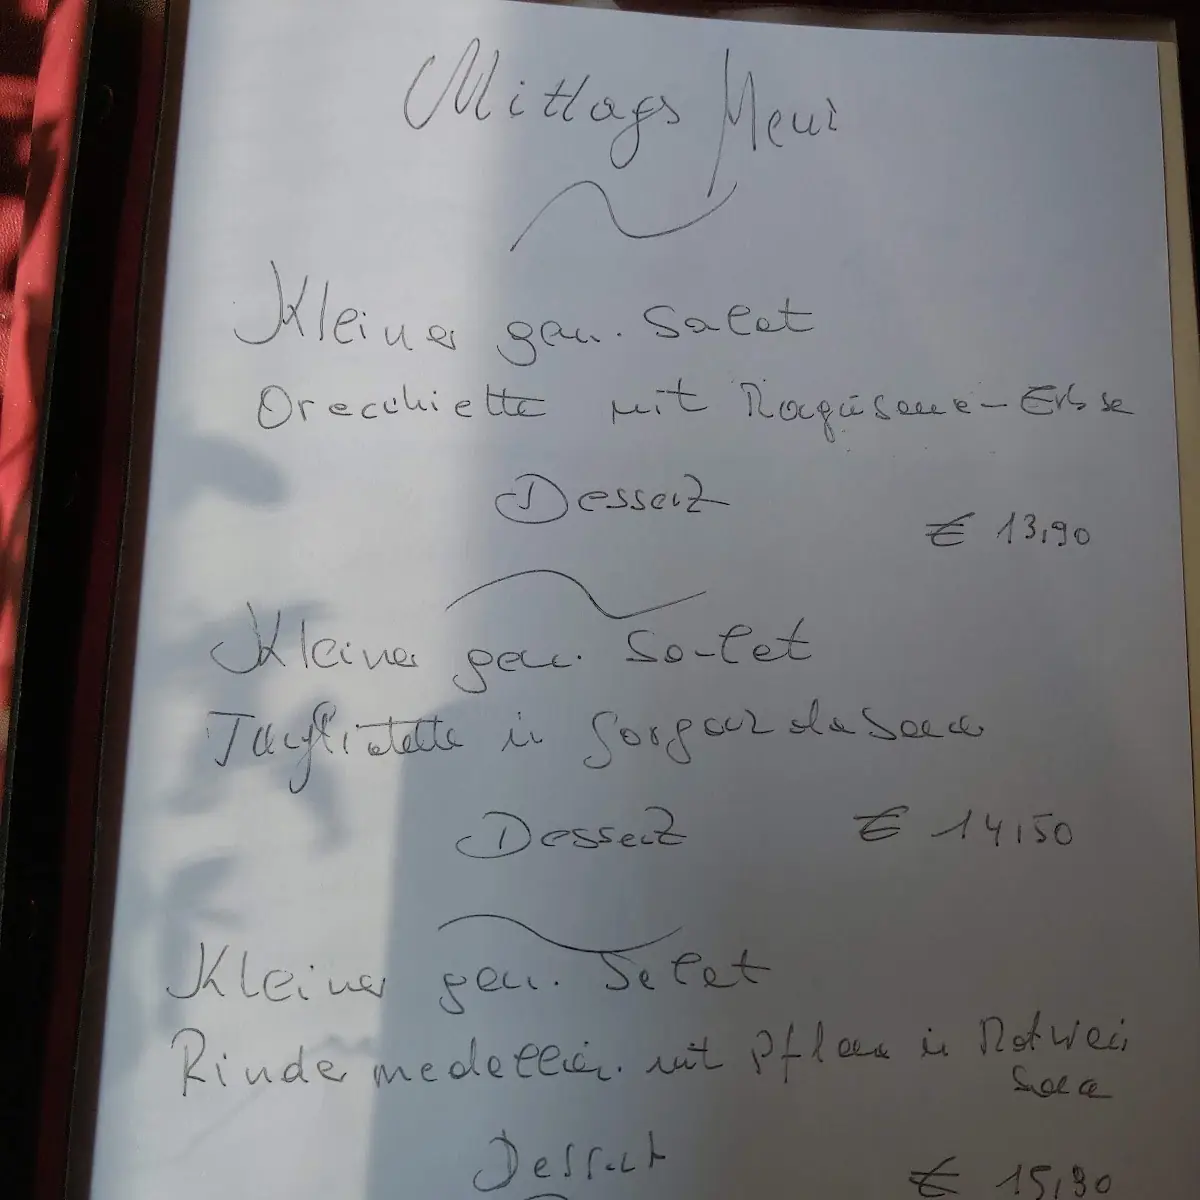 Mittags Menü
Kleiner gem. Salat
Orecchiette mit Ragúsauce - Erbse
Dessert
€ 13,90
Kleiner gem. Salat
Tagliatelle in Gorgonzolasauce
Dessert € 14,50
Kleiner gem. Salat
Rinder medallion. mit Pflaume in Rotwein
Sauce
Dessert
€ 15,90